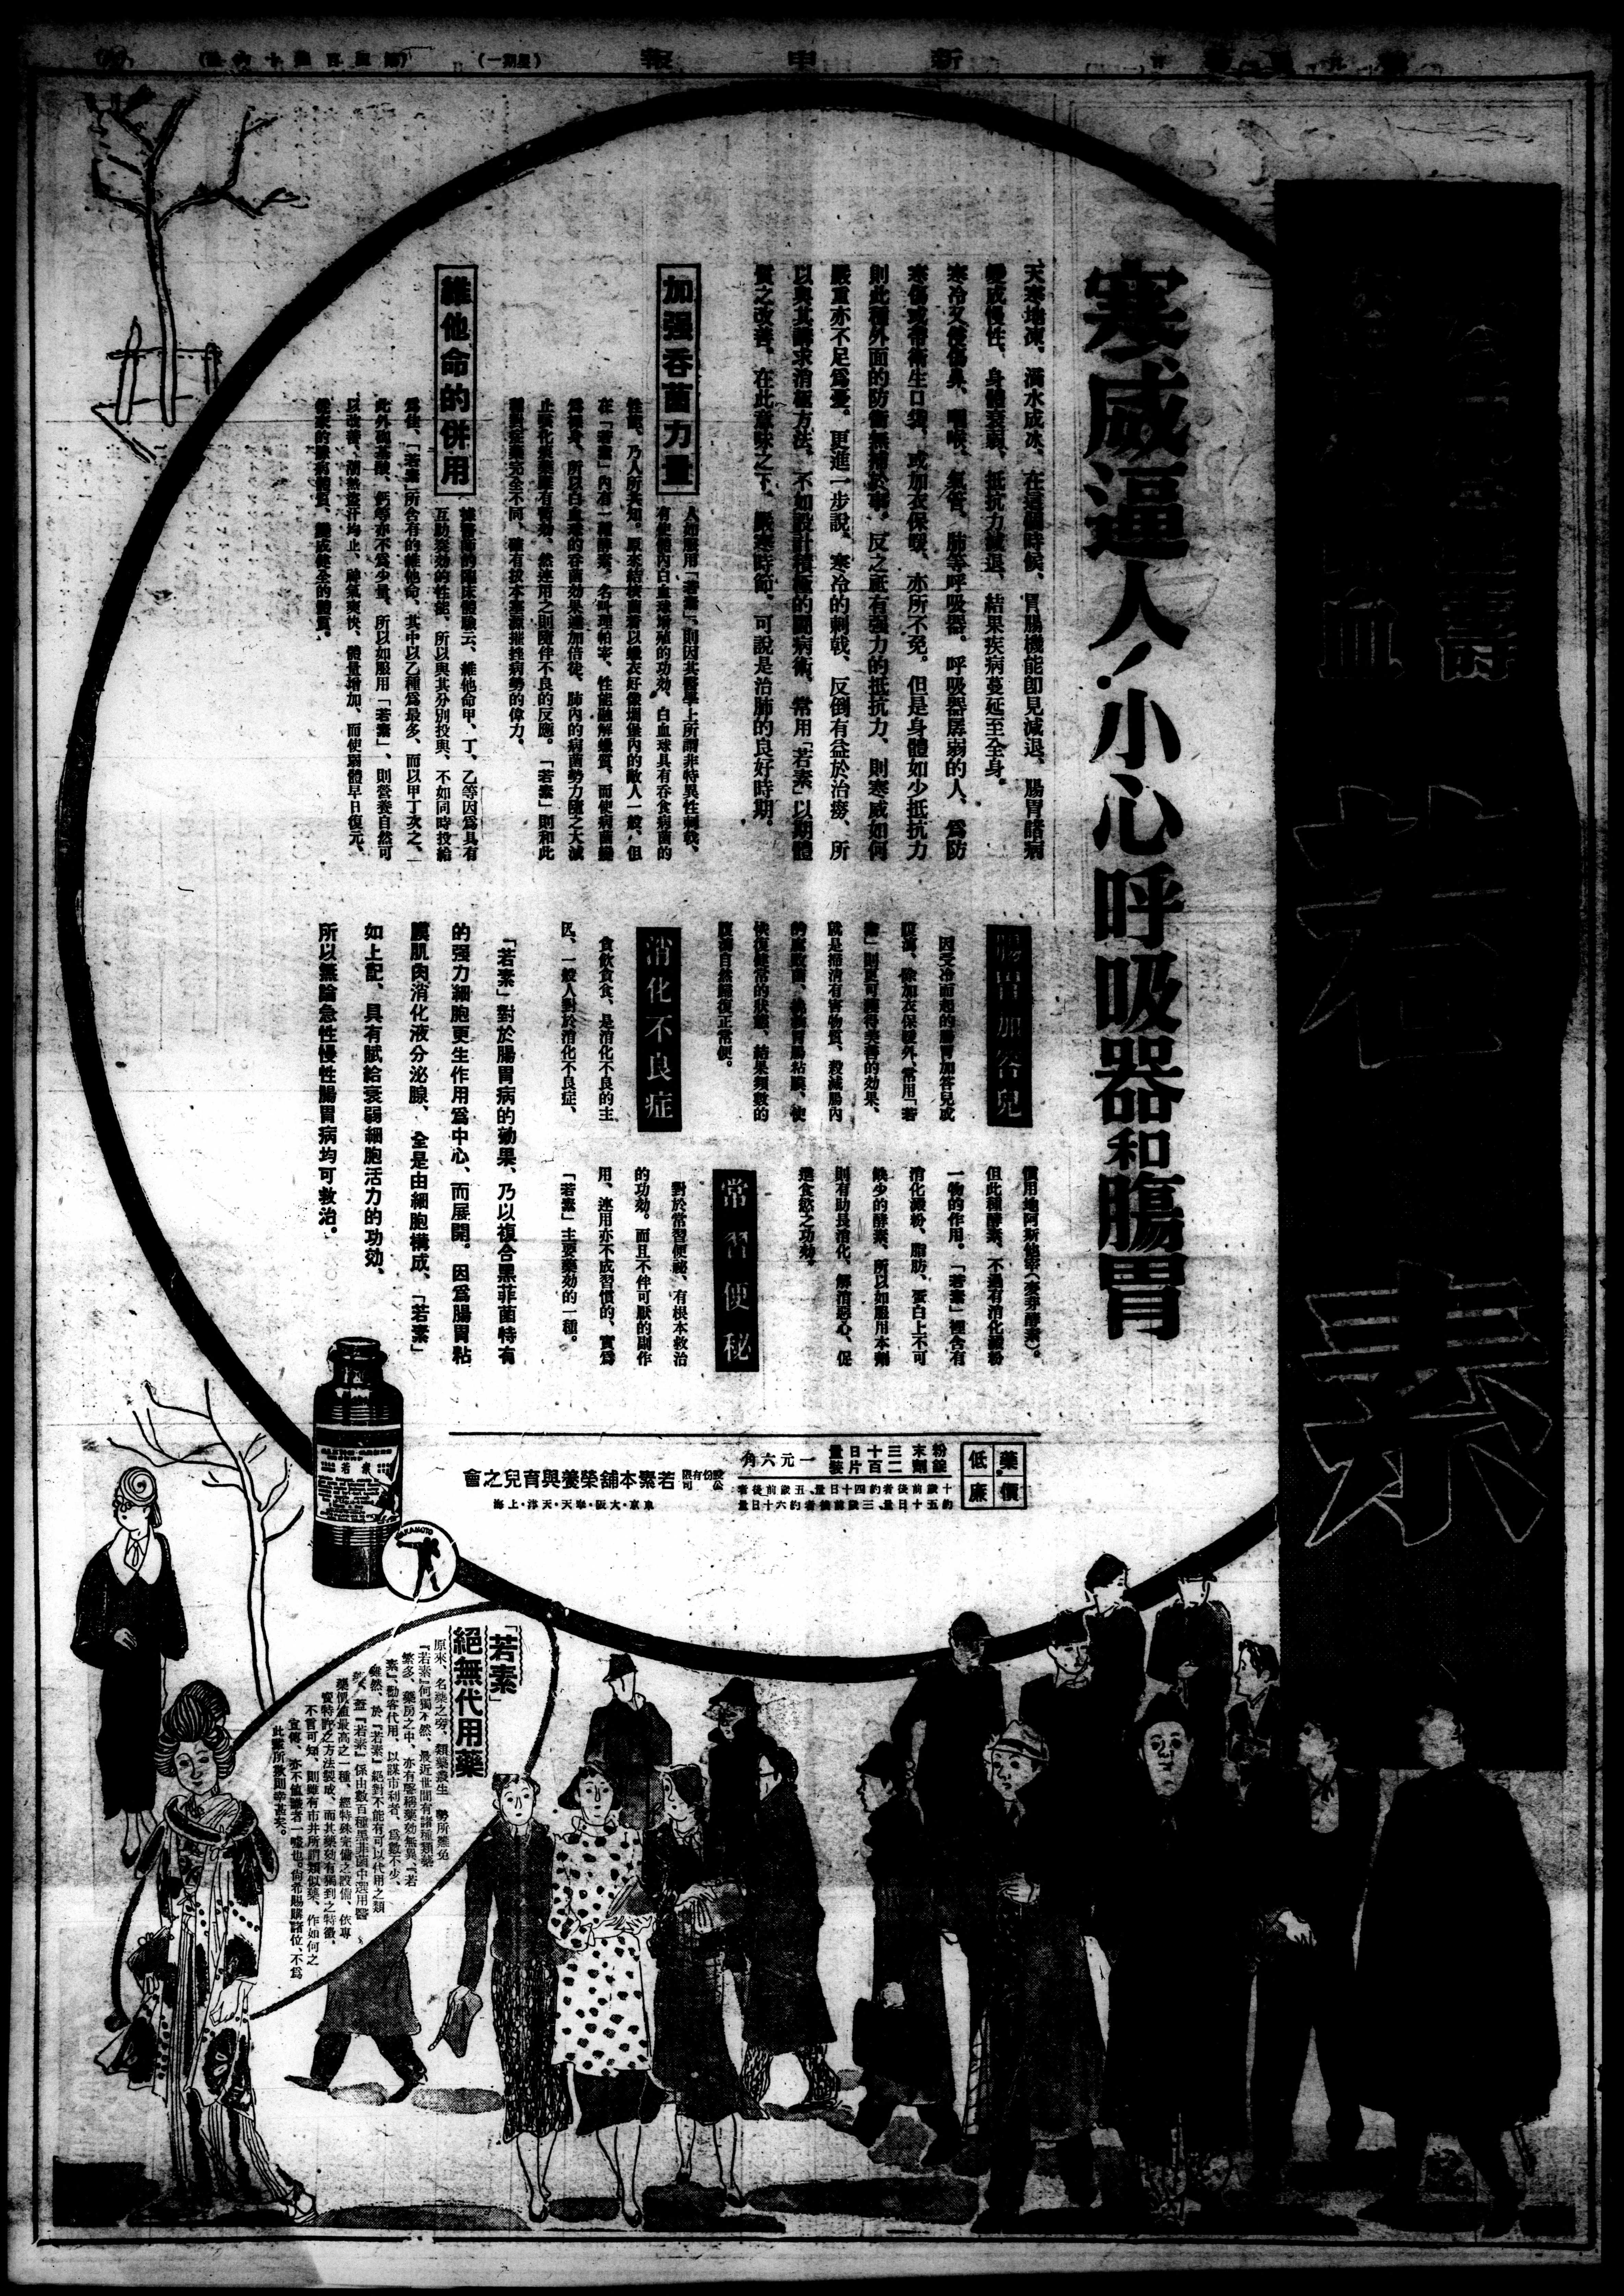 新申報
(星期一)
若素
寒威逼人!小心呼吸器和腸胃
天寒地凍、滴水成冰、在這個時候、胃腸機能卽見減退、腸胃諸病
變成慢性、身體衰弱、抵抗力減退、結果疾病蔓延至全身。
寒冷又侵傷鼻、咽喉、氣管、肺等呼吸器。呼吸器孱弱的人、爲防
寒傷或帶衛生口袋、或加衣保暖、亦所不免。但是身體如少抵抗力
則此種外面的防衛無補於事。反之祗有强力的抵抗力、則寒威如何
嚴重亦不足爲憂。更進一步說、寒冷的刺戟、反倒有益於治療、所
以與其講求消極方法、不如設計積極的鬪病術、常用「若素」以期體
質之改善。在此意味之下、嚴寒時節、可說是治肺的良好時期。
加强吞菌力量
人如服用「若素」、則因其醫學上所謂非特異性刺戟、
有使體內白血球增殖的功効、白血球具有吞食病菌的
性能、乃人所共知。原來結核菌着以蠟衣好像堡內的敵人一般、但
在「若素」內有一種酵素、名叫理帕宰、性能融解蠟質、而使病菌變
爲裸身、所以白血球的吞菌効果遂加倍徒、肺內的病菌勢力隨之大減
止咳化痰藥雖有暫効、然連用之則隨伴不良的反應。「若素」則和此
種對症藥完全不同、確有拔本塞源摧挫病勢的偉力。
維他命的併用
據醫師的臨床體驗云、維他命甲、丁、乙等因爲具有
互助奏効的性能、所以與其分別投與、不如同時投給
爲佳、「若素」所含有的維他命、其中以乙種爲最多、而以甲丁次之、
此外鐵基酸、鈣等亦不爲少量、所以如服用「若素」、則營養自然可
以改善、潮熱盜汗均止、神氣爽快、體量增加、而使弱體早日復元、
從來的腺病體質、變成健全的體質。
腸胃加答兒
因受冷而起的腸胃加答兒或
腹瀉、除加衣保暖外、常用「若
素」則更可獲得美善的効果、
就是掃清有害物質、殺滅腸內
的腐敗菌、恢復胃腸粘膜、使
恢復健常的狀態、結果頻數的
腹瀉自然歸復正常便。
消化不良症
貪飲貪食、是消化不良的主
因、一般人對於消化不良症、
慣用地阿斯他宰(麥芽酵素)。
但此種酵素、不過有消化澱粉
一物的作用。「若素」裡含有
消化澱粉、脂肪、蛋白上不可
缺少的酵素、所以如服用本劑
則有助長消化、解消惡心、促
進食慾之功効。
常習便秘
對於常習便祕、有根本救治
的功効。而且不伴可厭的副作
用、連用亦不成習慣的、實爲
「若素」主要藥効的一種。
「若素」對於腸胃病的効果、乃以複合黑菲菌特有
的强力細胞更生作用爲中心、而展開。因爲腸胃粘
膜肌肉消化液分泌腺、全是由細胞構成、「若素」
如上記、具有賦給衰弱細胞活力的功効、
所以無論急性慢性腸胃病均可救治。
藥價低廉
粉末三十日量
錠劑二百片裝
一元六角
股份有限公司 若素本舖榮養與育兒之會
東京・大阪・奉天・天津・上海
WAKAMOTO
「若素」
絕無代用藥
原來、名藥之旁、類藥叢生 勢所難免
「若素」何獨不然、最近世間有諸種類藥
繁多、藥房之中、亦有詭稱藥効無異「若
素」、勸客代用、以謀市利者、爲數不少、
雖然、於「若素」絕對不能有可以代用之類
藥、蓋「若素」係由數百種黑菲菌中選用醫
藥價値最高之一種、經特殊完備之設備、依專
賣特許之方法製成、而其藥効有獨到之特徵、
不言可知、則雖有市井所謂類似藥、作如何之
宣傳、亦不值識者一噱也。尙希賜購諸位、不爲
此輩所欺則幸甚矣。